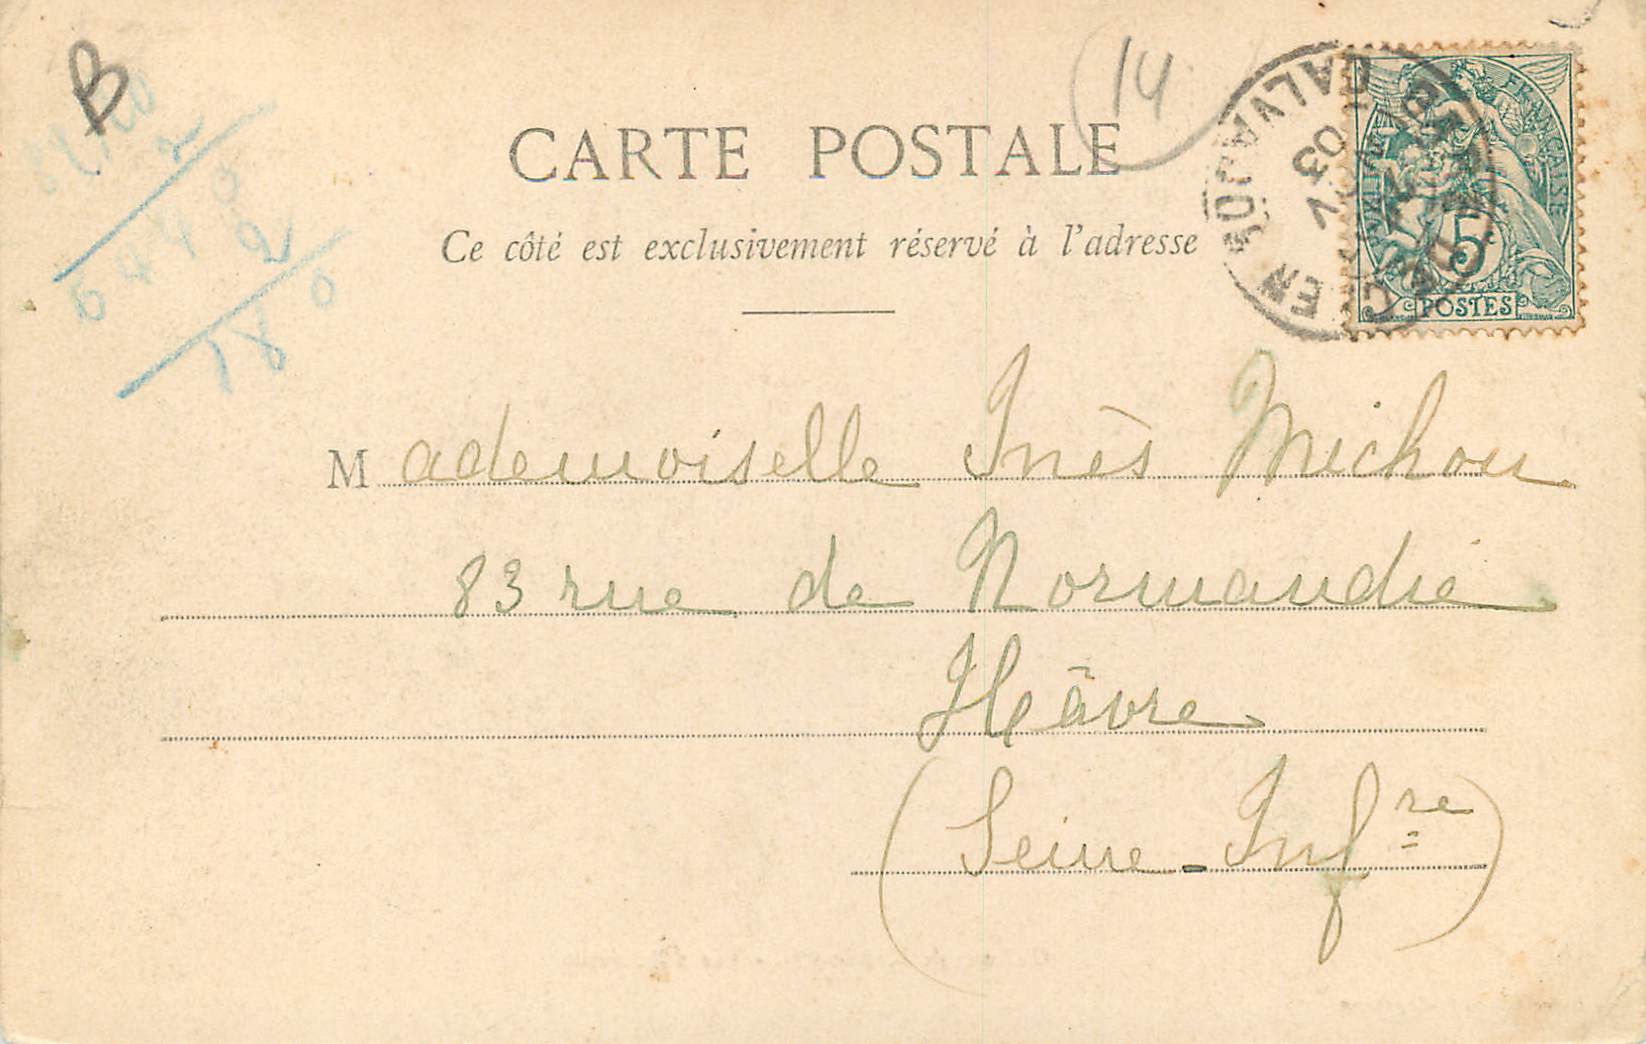 B
14
CARTE POSTALE
Ce côté est exclusivement réservé à l'adresse
CALVADOS
03
FRANÇAISE
5c
POSTES
2
2
0
18
Mademoiselle Inès Michou
83 rue de Normandie
Hâvre
(Seine-Infre)